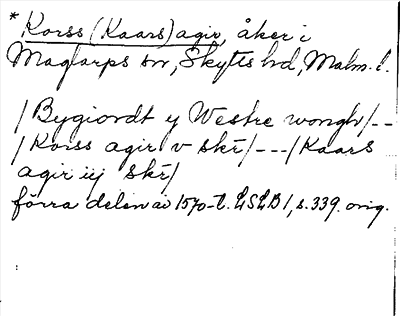 * Korss (Kaars) agir, åker i
Maglarps sn, Skytts hd, Malm. l.
/Bygiordt y Westre wongh/--
/Korss agir v skr̄/---/Kaars
agir iij skr̄/
förra delen av 1570-t. LSLB 1, s. 339. orig.